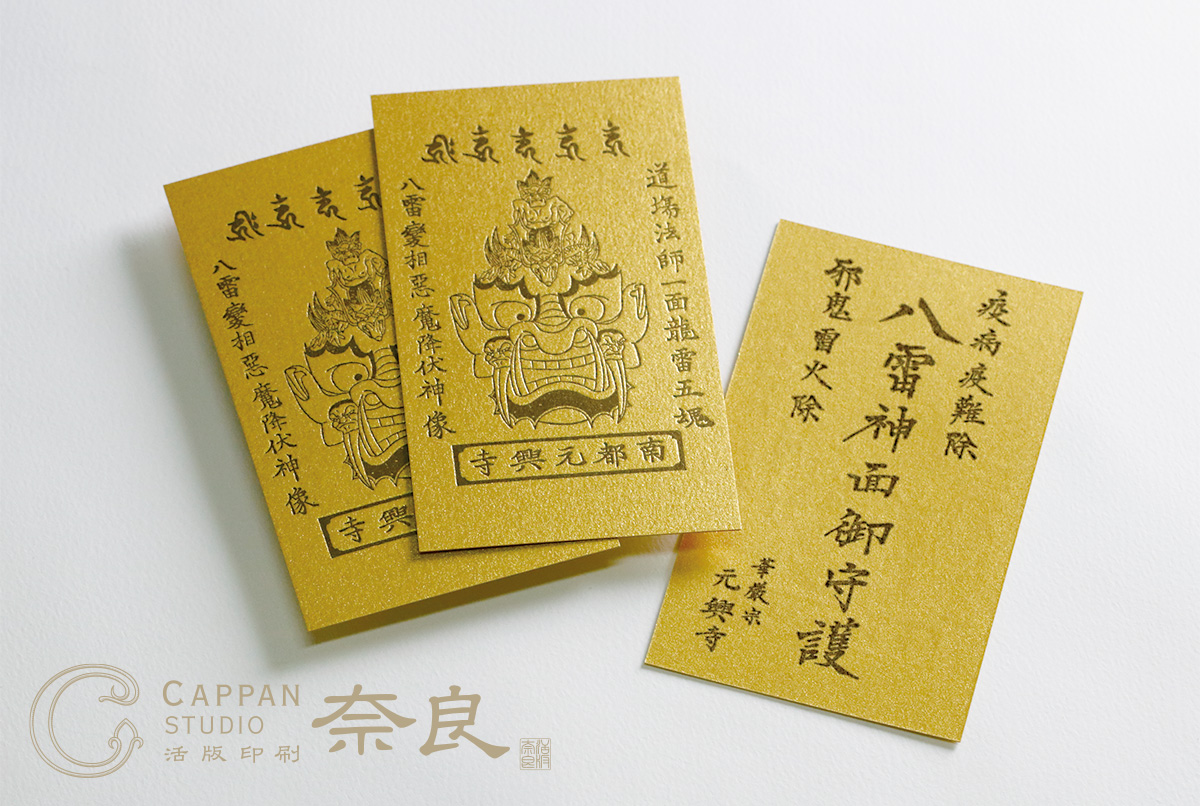 道場法師一面龍雷五塊
八雷變相惡魔降伏神像
南都元興寺
八雷變相惡魔降伏神像
興寺
疫病疫難除
八雷神面御守護
邪鬼雷火除
華厳宗
元興寺
CAPPAN
STUDIO
活版印刷
奈良